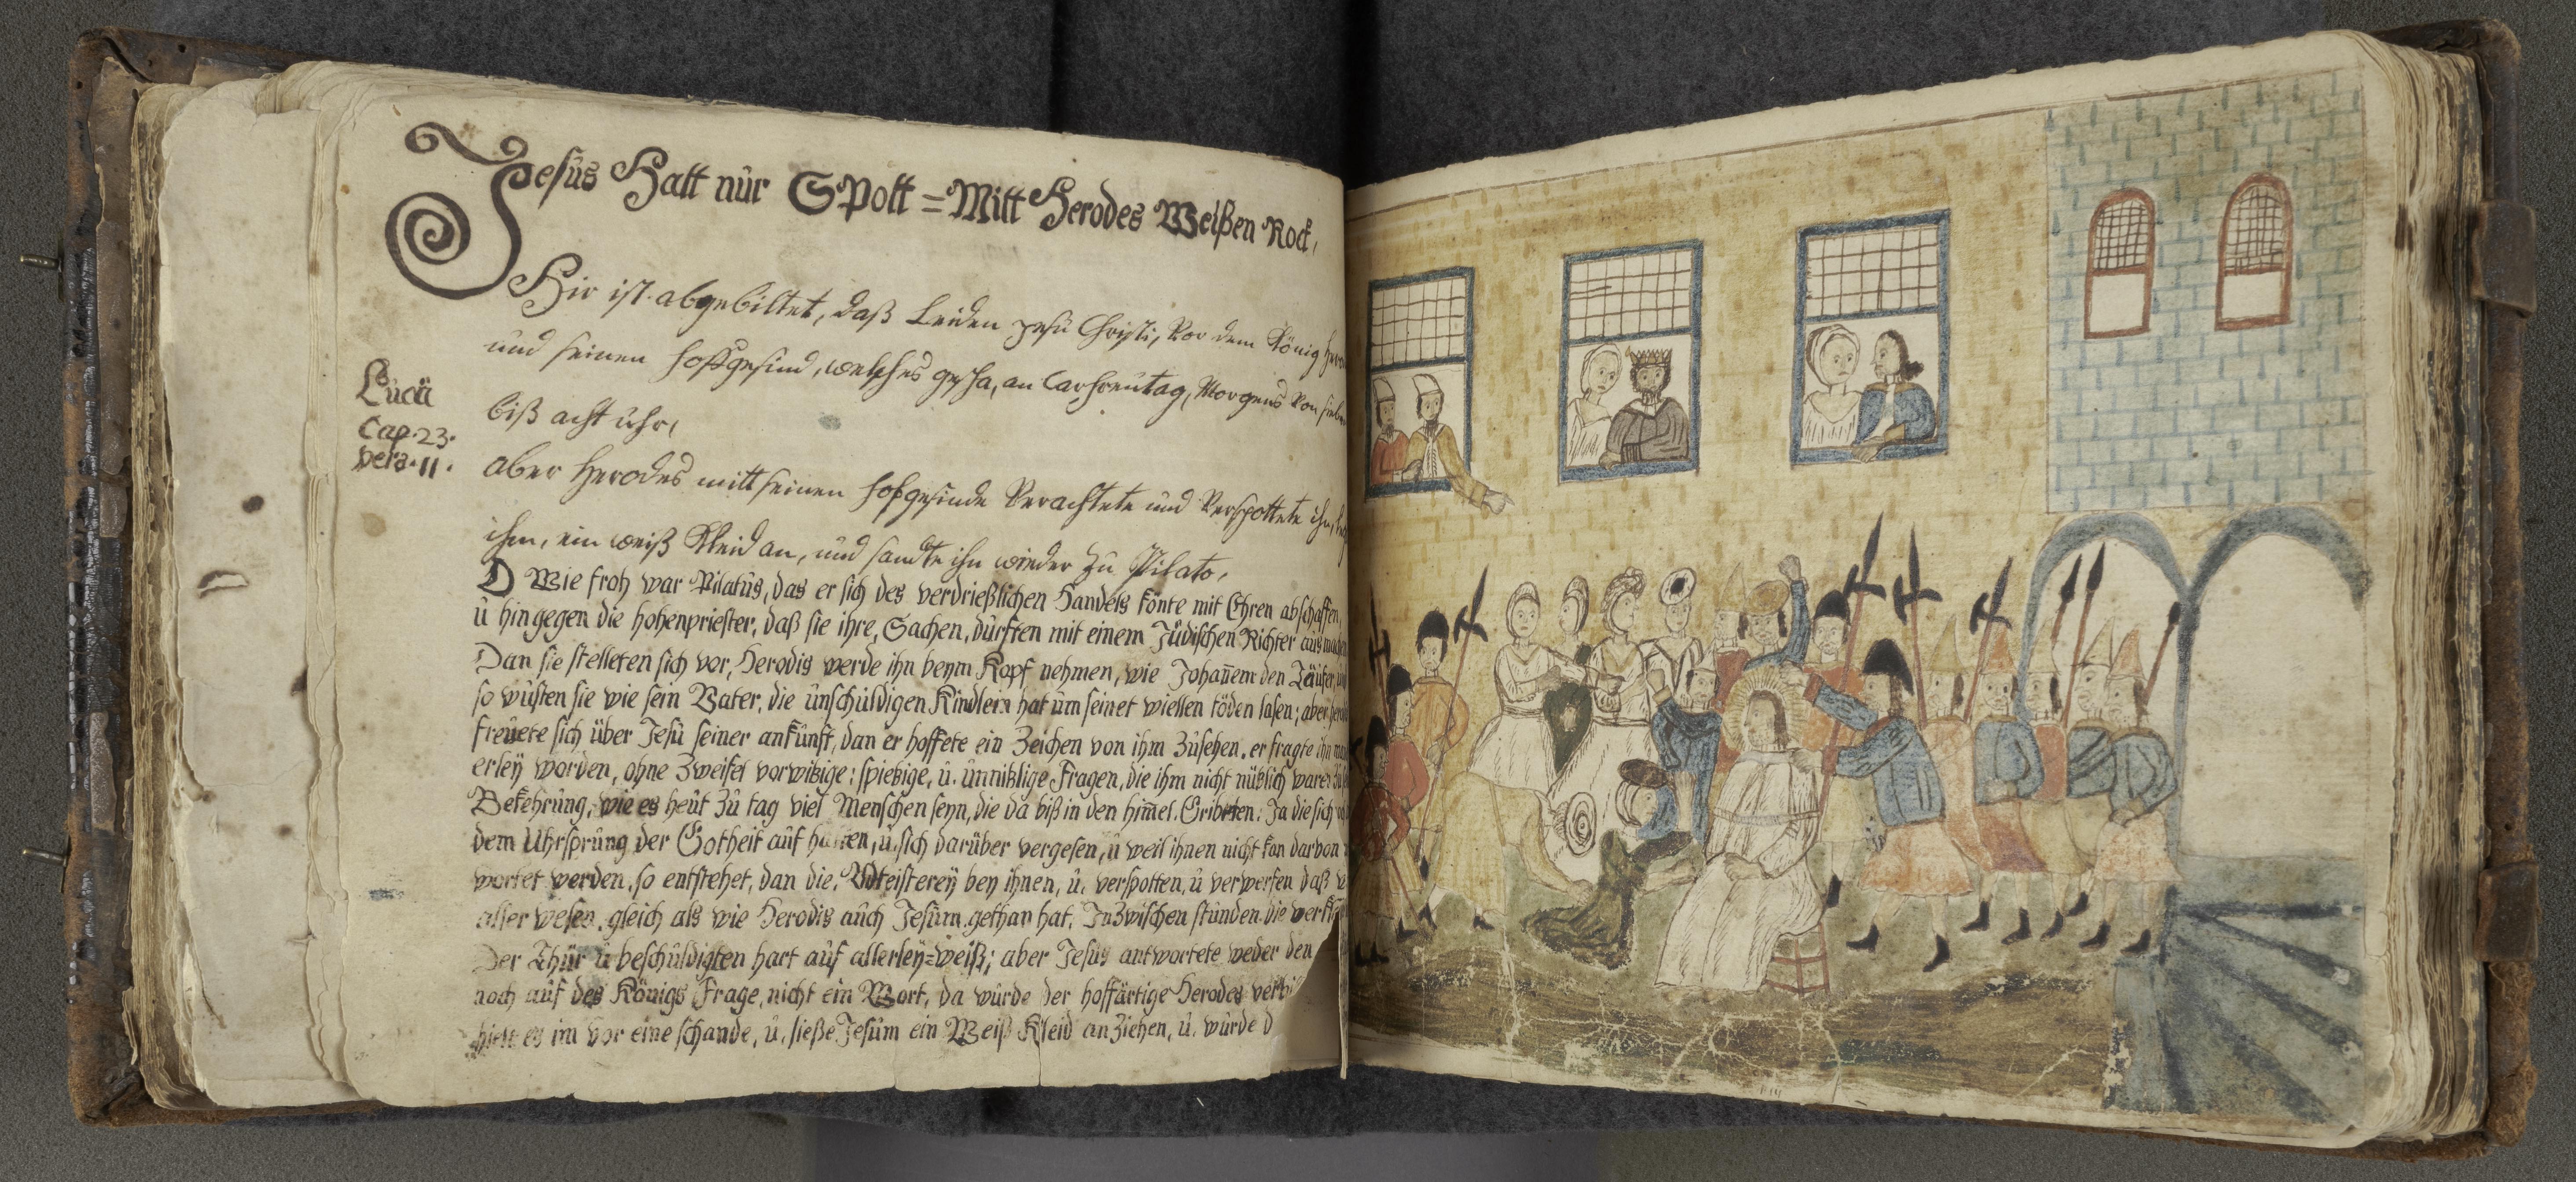 Jesûs Hatt nûr SPott = Mitt Herodes Weißen Rock,
Hir ist abgebiltet, daß Leiden Jesu Christi, Vor dem König
und seinen hoffgesind, welches gescha, an Carfreutag, Morgens Von
biß acht uhr,
Lucä
Cap. 23.
vers. 11.
aber Herodes mitt seinen hofgesinde Verachtete und Verspottete ihn,
ihm, ein weiß Kleid an, und sandte ihn wieder zu Pilato,
O Wie froh war Pilatûs, das er sich des verdrießlichen Handels könte mit Ehren abschaffen,
û hingegen die hohenpriester, daß sie ihre, Sachen, dûrften mit einem Jüdischen Richter aus
Dan sie stelleten sich vor, Herodis werde ihn beym Kopf nehmen, wie Johan̄em den Täûfer,
so wûsten sie wie sein Vater, die ûnschûldigen Kindlein hat ûm seinet wiellen töden lasen; aber
freûete sich über Jesû seiner ankûnft, dan er hoffete ein Zeichen von ihm Zûsehen. er fragte ihn
erleÿ worden, ohne Zweifel vorwitzige; spietzige, û. ûnnitzlige Fragen, die ihm nicht nützlich waren
Bekehrûng, wie es heût Zû tag viel Menschen seyn, die da biß in den him̄el. Ja die sich
dem Uhrsprûng der Gotheit aûf û. sich darüber vergesen, û weil ihnen nicht kan darvon
wortet werden, so entstehet, dan die, beÿ ihnen, û. verspotten, û verwerfen daß
aller wesen, gleich als wie Herodis aûch Jesûm gethan hat. InZwischen stûnden die
Der Thür û beschûldigten hart aûf allerleÿ=weiß; aber Jesûs antwortete weder den
noch aûf des Königs Frage, nicht ein Wort, da wûrde der hoffärtige Herodes
hielt es im vor eine schande, û. ließe Jesûm ein Weiß Kleid anZiehen, û. wûrde